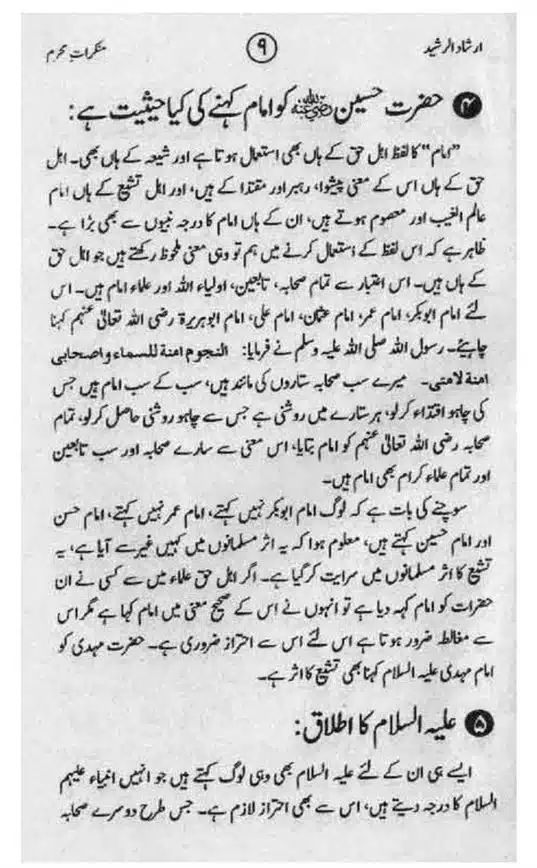 ارشاد الرشید ۹ منکراتِ محرم
۴ حضرت حسین رضی اللہ عنہ کو امام کہنے کی کیا حیثیت ہے:
”امام“ کا لفظ اہل حق کے ہاں بھی استعمال ہوتا ہے اور شیعہ کے ہاں بھی۔ اہل
حق کے ہاں اس کے معنی پیشوا، رہبر اور مقتدا کے ہیں، اور اہل تشیع کے ہاں امام
عالم الغیب اور معصوم ہوتے ہیں، ان کے ہاں امام کا درجہ نبیوں سے بھی بڑا ہے۔
ظاہر ہے کہ اس لفظ کے استعمال کرنے میں ہم تو وہی معنی ملحوظ رکھتے ہیں جو اہل حق
کے ہاں ہیں۔ اس اعتبار سے تمام صحابہ، تابعین، اولیاء اللہ اور علماء امام ہیں۔ اس
لئے امام ابوبکر، امام عمر، امام عثمان، امام علی، امام ابوہریرۃ رضی اللہ تعالیٰ عنہم کہنا
چاہیئے۔ رسول اللہ صلی اللہ علیہ وسلم نے فرمایا: النجوم امنة للسماء و اصحابی
امنة لامتی۔ میرے سب صحابہ ستاروں کی مانند ہیں، سب کے سب امام ہیں جس
کی چاہو اقتداء کرلو، ہر ستارے میں روشنی ہے جس سے چاہو روشنی حاصل کرلو، تمام
صحابہ رضی اللہ تعالیٰ عنہم کو امام بتایا، اس معنی سے سارے صحابہ اور سب تابعین
اور تمام علماء کرام بھی امام ہیں۔
سوچنے کی بات ہے کہ لوگ امام ابوبکر نہیں کہتے، امام عمر نہیں کہتے، امام حسن
اور امام حسین کہتے ہیں، معلوم ہوا کہ یہ اثر مسلمانوں میں کہیں غیر سے آیا ہے، یہ
تشیع کا اثر مسلمانوں میں سرایت کرگیا ہے۔ اگر اہل حق علماء میں سے کسی نے ان
حضرات کو امام کہہ دیا ہے تو انہوں نے اس کے صحیح معنی میں امام کہا ہے مگر اس
سے مغالطہ ضرور ہوتا ہے اس لئے اس سے احتراز ضروری ہے۔ حضرت مہدی کو
امام مہدی علیہ السلام کہنا بھی تشیع کا اثر ہے۔
۵ علیہ السلام کا اطلاق:
ایسے ہی ان کے لئے علیہ السلام بھی وہی لوگ کہتے ہیں جو انہیں انبیاء علیہم
السلام کا درجہ دیتے ہیں، اس سے بھی احتراز لازم ہے۔ جس طرح دوسرے صحابہ